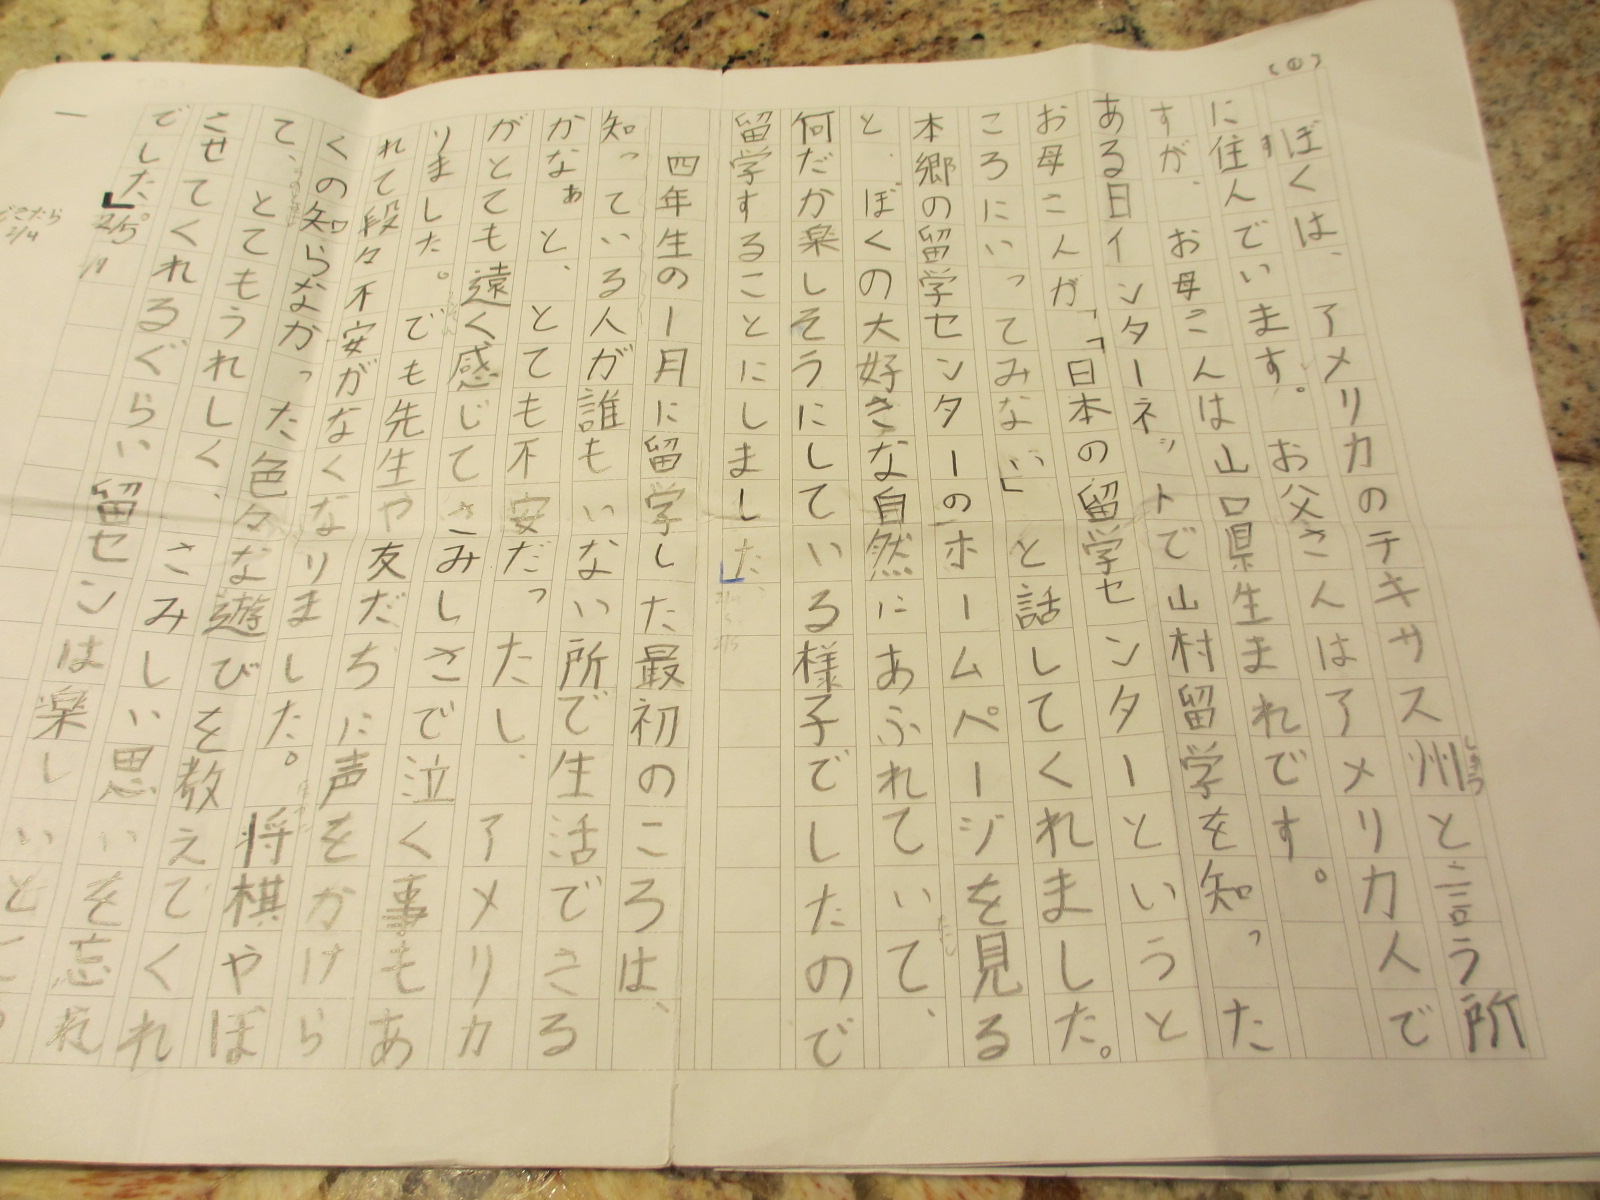 (1)
ぼくは、アメリカのテキサス州と言う所
しゅう
に住んでいます。お父さんはアメリカ人で
す
すが、お母さんは山口県生まれです。
ある日インターネットで山村留学を知った
お母さんが、「日本の留学センターというと
ころにいってみない」と話してくれました。
本郷の留学センターのホームページを見る
と、ぼくの大好きな自然にあふれていて、
何だか楽しそうにしている様子でしたので
留学することにしました。」
四年生の一月に留学した最初のころは、
知っている人が誰もいない所で生活できる
かなぁと、とても不安だったし、アメリカ
がとても遠く感じてさみしさで泣く事もあ
りました。でも先生や友だちに声をかけら
れて段々不安がなくなりました。将棋やぼ
くの知らなかった色々な遊びを教えてくれ
て、とてもうれしく、さみしい思いを忘れ
させてくれるぐらい留センは楽しいところ
でした」
2/5